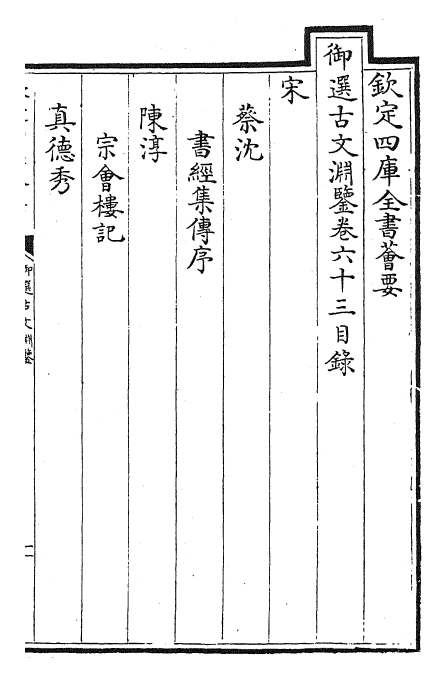 欽定四庫全書薈要
御選古文淵鑒卷六十三目錄
宋
蔡沈
書經集傳序
陳淳
宗會樓記
真德秀
御選古文淵鑒